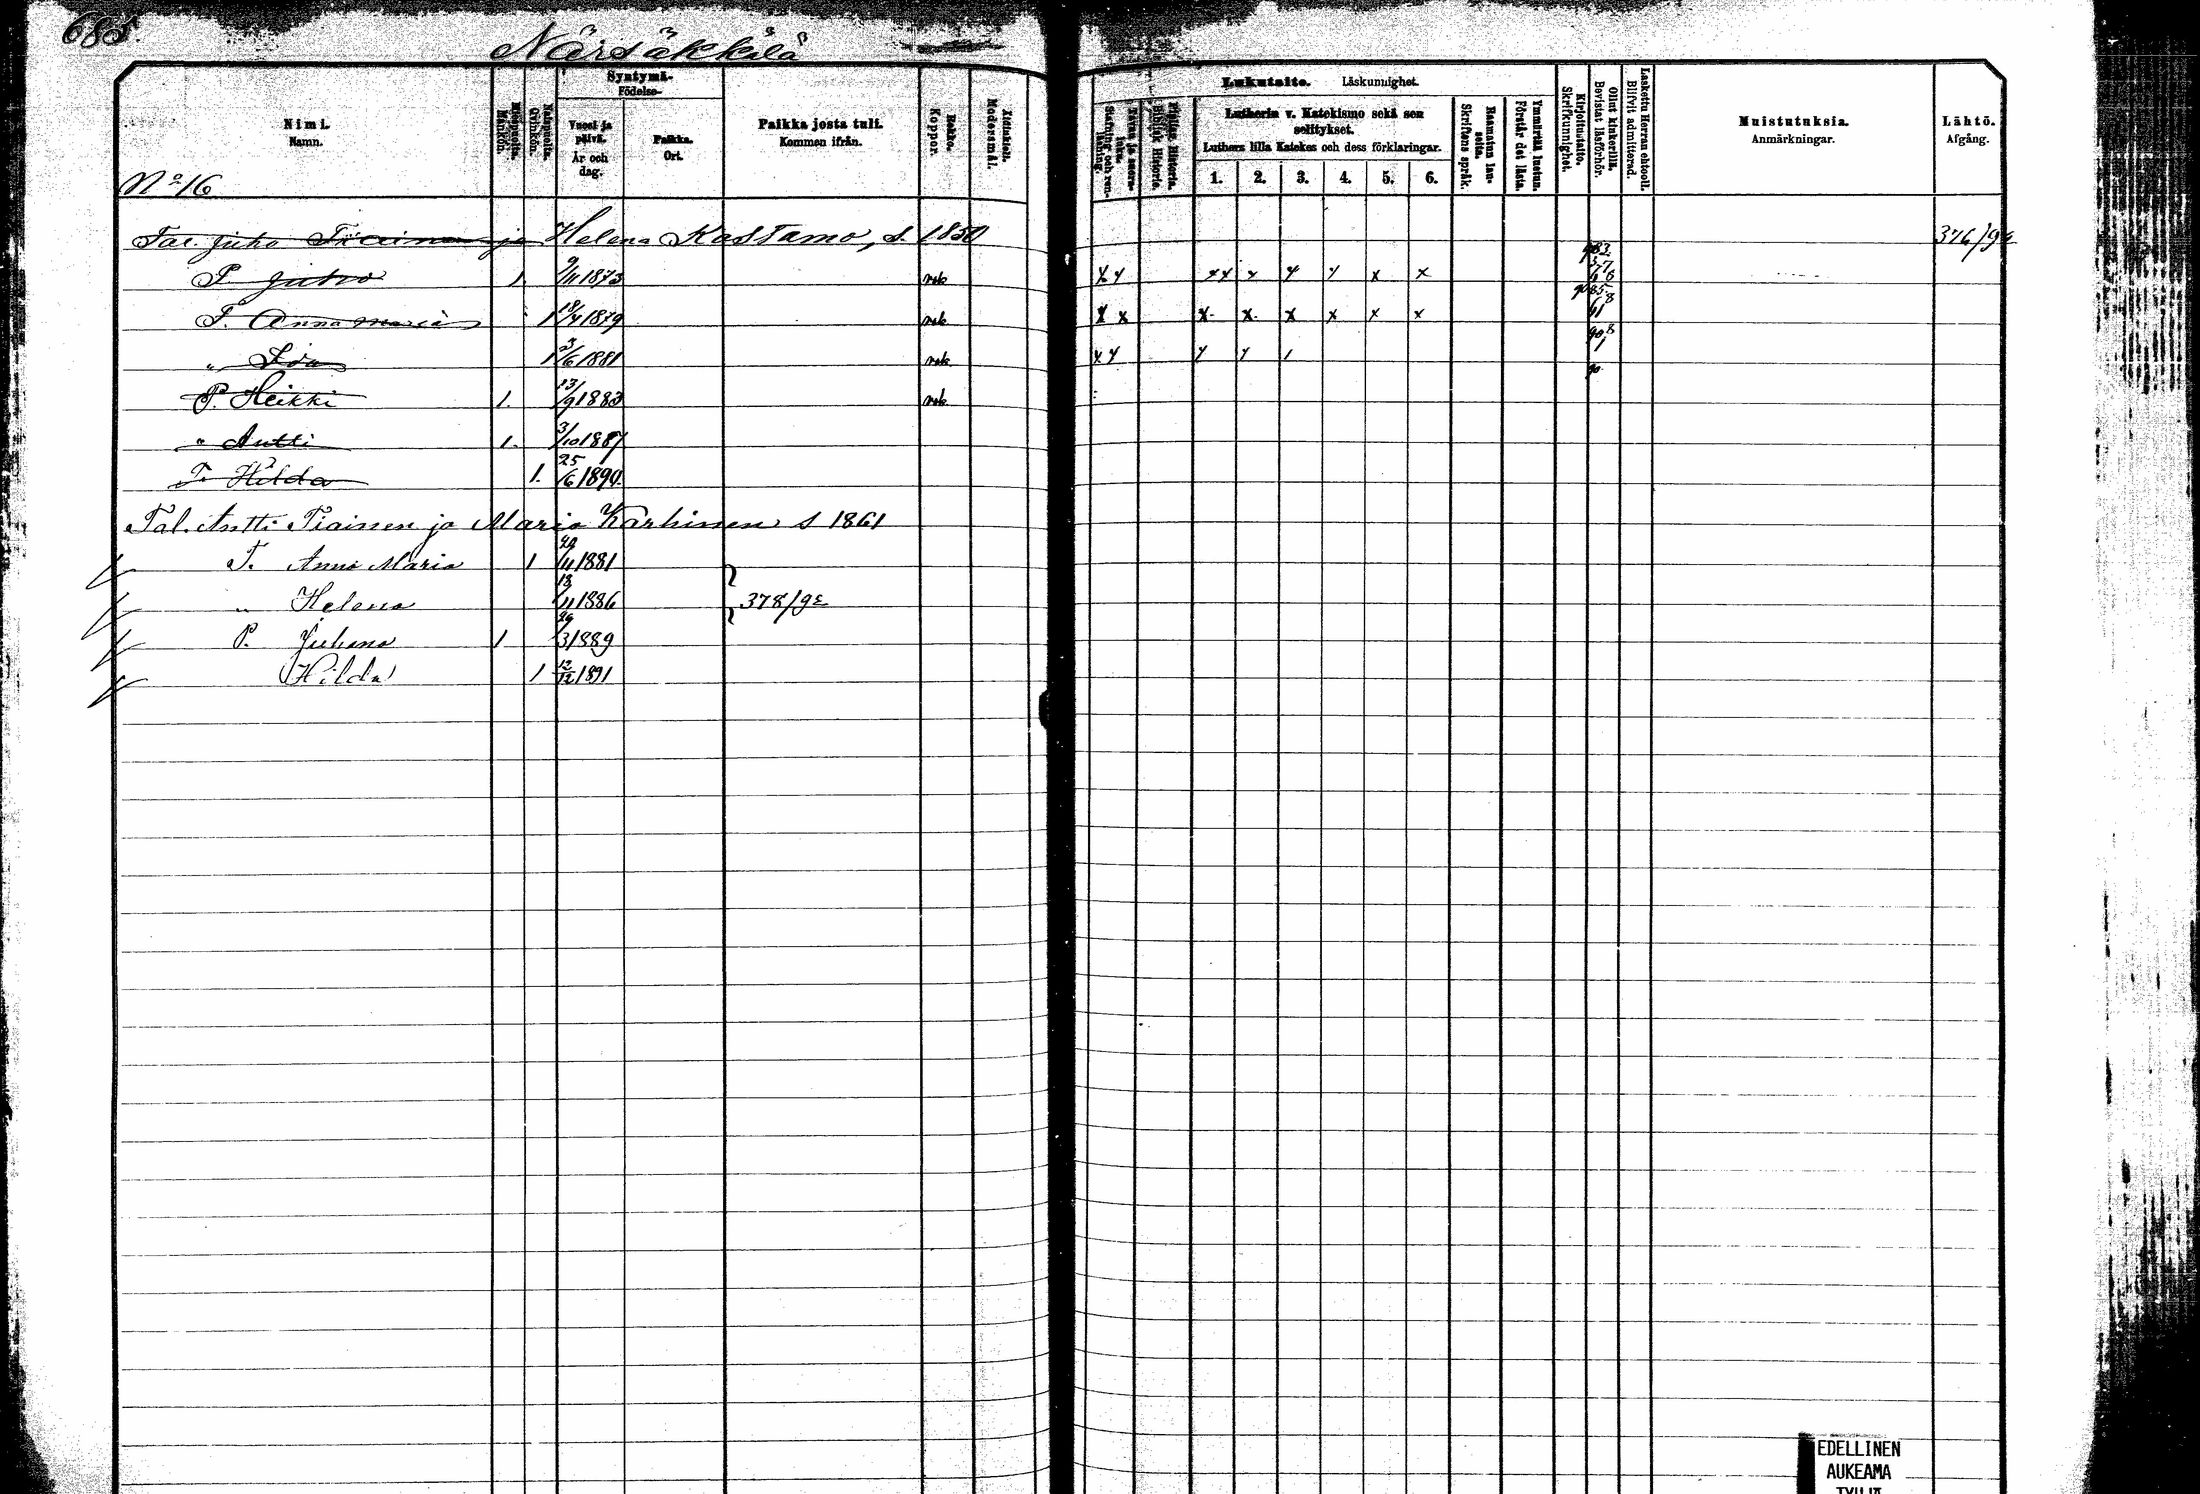 685.
Närsäkkälä
Nimi.
Namn.
Miespuolia.
Mankön.
Naispuolia.
Qvinkön.
Syntymä-
Födelse-
Vuosi ja päivä.
År och dag.
Paikka.
Ort.
Paikka josta tuli.
Kommen ifrån.
Rokko.
Koppor.
Äidinkieli.
Modersmål.
Lukutaito. Läskunnighet.
Tavaa ja suora luku.
Stafning och ren-läsning.
Piplian Historia.
Biblisk Historia.
Lutherin v. Katekismo sekä sen
selitykset.
Luthers lilla Katekes och dess förklaringar.
1. 2. 3. 4. 5. 6.
Raamatun lauseita.
Skriftens språk.
Ymmärtää luetun.
Förstår det lästa.
Kirjoitustaito.
Skrifkunnighet.
Ollut kinkerillä.
Bevistat läsförhör.
Laskettu Herran ehtooll.
Blifvit admitterad.
Muistutuksia.
Anmärkningar.
Lähtö.
Afgång.
No 16
Tal. Juho Tiainen ja Helena Kastamo, s. 1850 376/92
P. Juho 1. 9/11 1873 rok x x x x x x x x x
T. Anna Maria 1 18/4 1879 rok x x x x x x x x
" Ida 1 3/6 1881 rok x x x x 1
P. Heikki 1. 13/9 1883 rok
" Antti 1. 3/10 1887
T. Hilda 1. 25/6 1890.
Tal. Antti Tiainen ja Maria Karhinen s 1861
T. Anna Maria 1 /11 1881
" Helena 13/11 1886 378/92
P. Juhana 1 29/3 1889
Hilda 1 12/12 1891
EDELLINEN
AUKEAMA
TYHJÄ